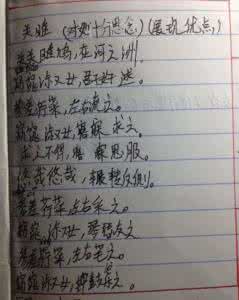 关雎 (对她十分思念)(展现优点)
关雎鸠,在河之洲。
窈窕淑女,君子好逑。
参差荇菜,左右流之。
窈窕淑女,寤寐求之。
求之不得,寤寐思服。
悠哉悠哉,辗转反侧。
参差荇菜,左右采之。
窈窕淑女,琴瑟友之
参差荇菜,左右芼之。
窈窕淑女,钟鼓乐之。